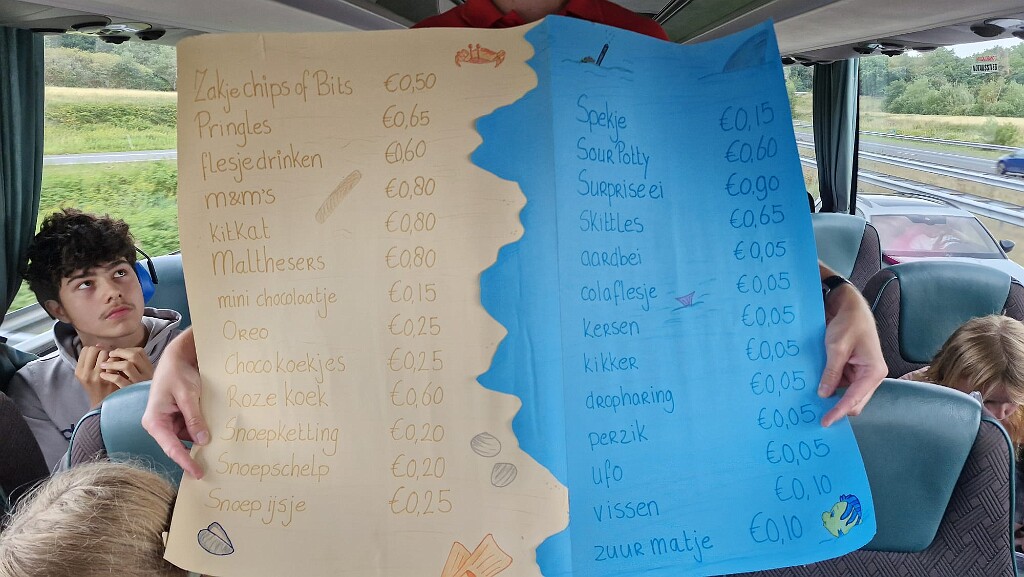 Zakje chips of Bits €0,50
Pringles €0,65
flesje drinken €0,60
m&m's €0,80
kitkat €0,80
Malthesers €0,80
mini chocolaatje €0,15
Oreo €0,25
Chocokoekjes €0,25
Roze koek €0,60
Snoepketting €0,20
Snoepschelp €0,20
Snoepijsje €0,25
Spekje €0,15
Sour Potty €0,60
Surprise ei €0,90
Skittles €0,65
aardbei €0,05
colaflesje €0,05
kersen €0,05
kikker €0,05
dropharing €0,05
perzik €0,05
ufo €0,05
vissen €0,10
zuur matje €0,10